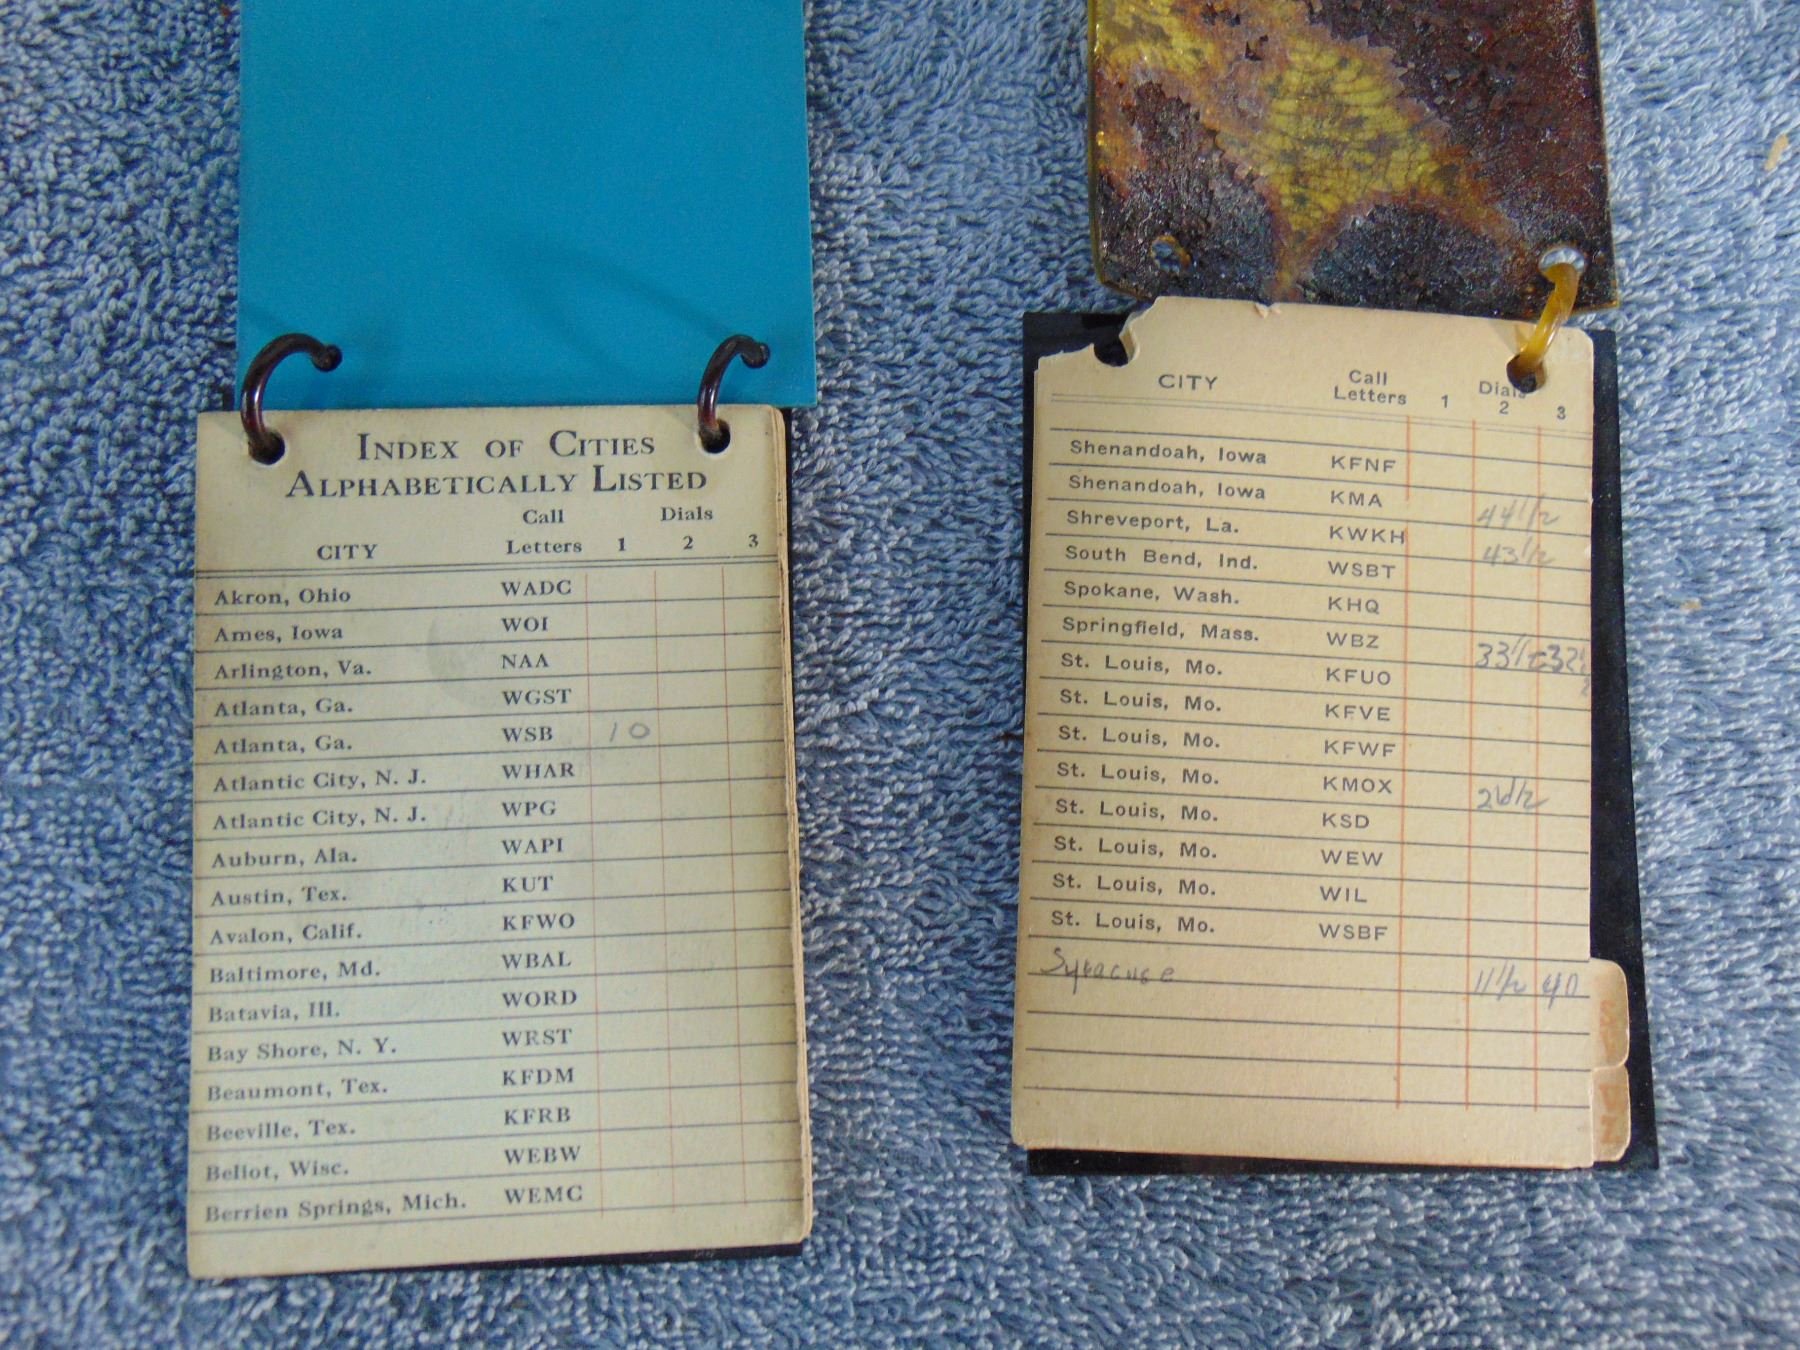 INDEX OF CITIES
ALPHABETICALLY LISTED
Call Dials
CITY Letters 1 2 3
Akron, Ohio WADC
Ames, Iowa WOI
Arlington, Va. NAA
Atlanta, Ga. WGST
Atlanta, Ga. WSB 10
Atlantic City, N. J. WHAR
Atlantic City, N. J. WPG
Auburn, Ala. WAPI
Austin, Tex. KUT
Avalon, Calif. KFWO
Baltimore, Md. WBAL
Batavia, Ill. WORD
Bay Shore, N. Y. WRST
Beaumont, Tex. KFDM
Beeville, Tex. KFRB
Beliot, Wisc. WEBW
Berrien Springs, Mich. WEMC
Call Dials
CITY Letters 1 2 3
Shenandoah, Iowa KFNF
Shenandoah, Iowa KMA 44 1/2
Shreveport, La. KWKH 43 1/2
South Bend, Ind. WSBT
Spokane, Wash. KHQ
Springfield, Mass. WBZ 33 1/2-32 1/2
St. Louis, Mo. KFUO
St. Louis, Mo. KFVE
St. Louis, Mo. KFWF
St. Louis, Mo. KMOX 26 1/2
St. Louis, Mo. KSD
St. Louis, Mo. WEW
St. Louis, Mo. WIL
St. Louis, Mo. WSBF
Syracuse 11 1/2 40